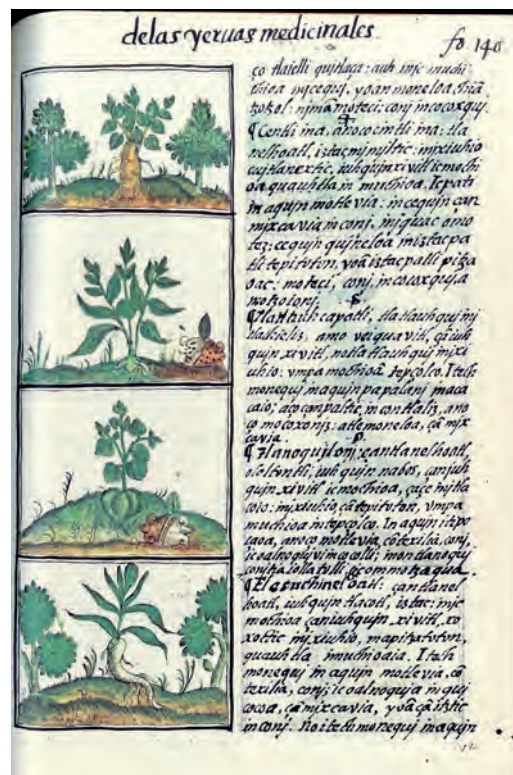 delas yeruas medicinales. fo 140
ço tlaielli quitlaça: auh mjc muchi
njmã moteci: conj in cocoxquj.
¶ Centli ina, anoço cintli ina: tla
nelhoatl, iztac mjmjltic: mjxiuhio
iuhqujn xivitl ic mochi
oa quauhtla in muchioa. Ic pati
in aqujn motlevia: in cequjn çan
mjxcavia in conj, injquac amo
tez: cequjn quineloa in iztac pa
tli tepitoton, yoã iztac palli pitza
oac: moteci, conj, in cocoxquj,
¶ Tlatlauhcapatli, tlatlauhquj in
amo vei quavitl, çã iuh
qujn xivitl, no tlatlauhquj mjxi
uhio: vmpa mochioa tepcolco. Itech
monequj in aqujn papalanj in aca
caio; aço çan paltic, in contlaliz, ano
ço mocoxonjz: atle moneloa, çã mjx
cavia.
¶ Tlanoqujlonj: çan tlanelhoatl,
ololtontli, iuhqujn nabos, çan iuh
qujn xivitl ic mochioa,
mjxiuhio, çã tepitoton, vmpa
muchioa in tepcolco. In aqujn
caoa, anoço motlevia, cõtexilia, conj,
ic oalnoqujvi in cocolli;
¶ çan tlanel
hoatl, iuhqujn tlacotl, iztac: injc
mochioa çan iuhqujn xivitl, xo
xoctic in jxiuhio,
quauhtla imuchioaia. Itech
monequj in aqujn motlevia, cõ
texilia, conj; ic oalnoquja in quj
cocoa, çã mjxcavia, yoã çã iztic
in conj. No itech monequj in aqujn